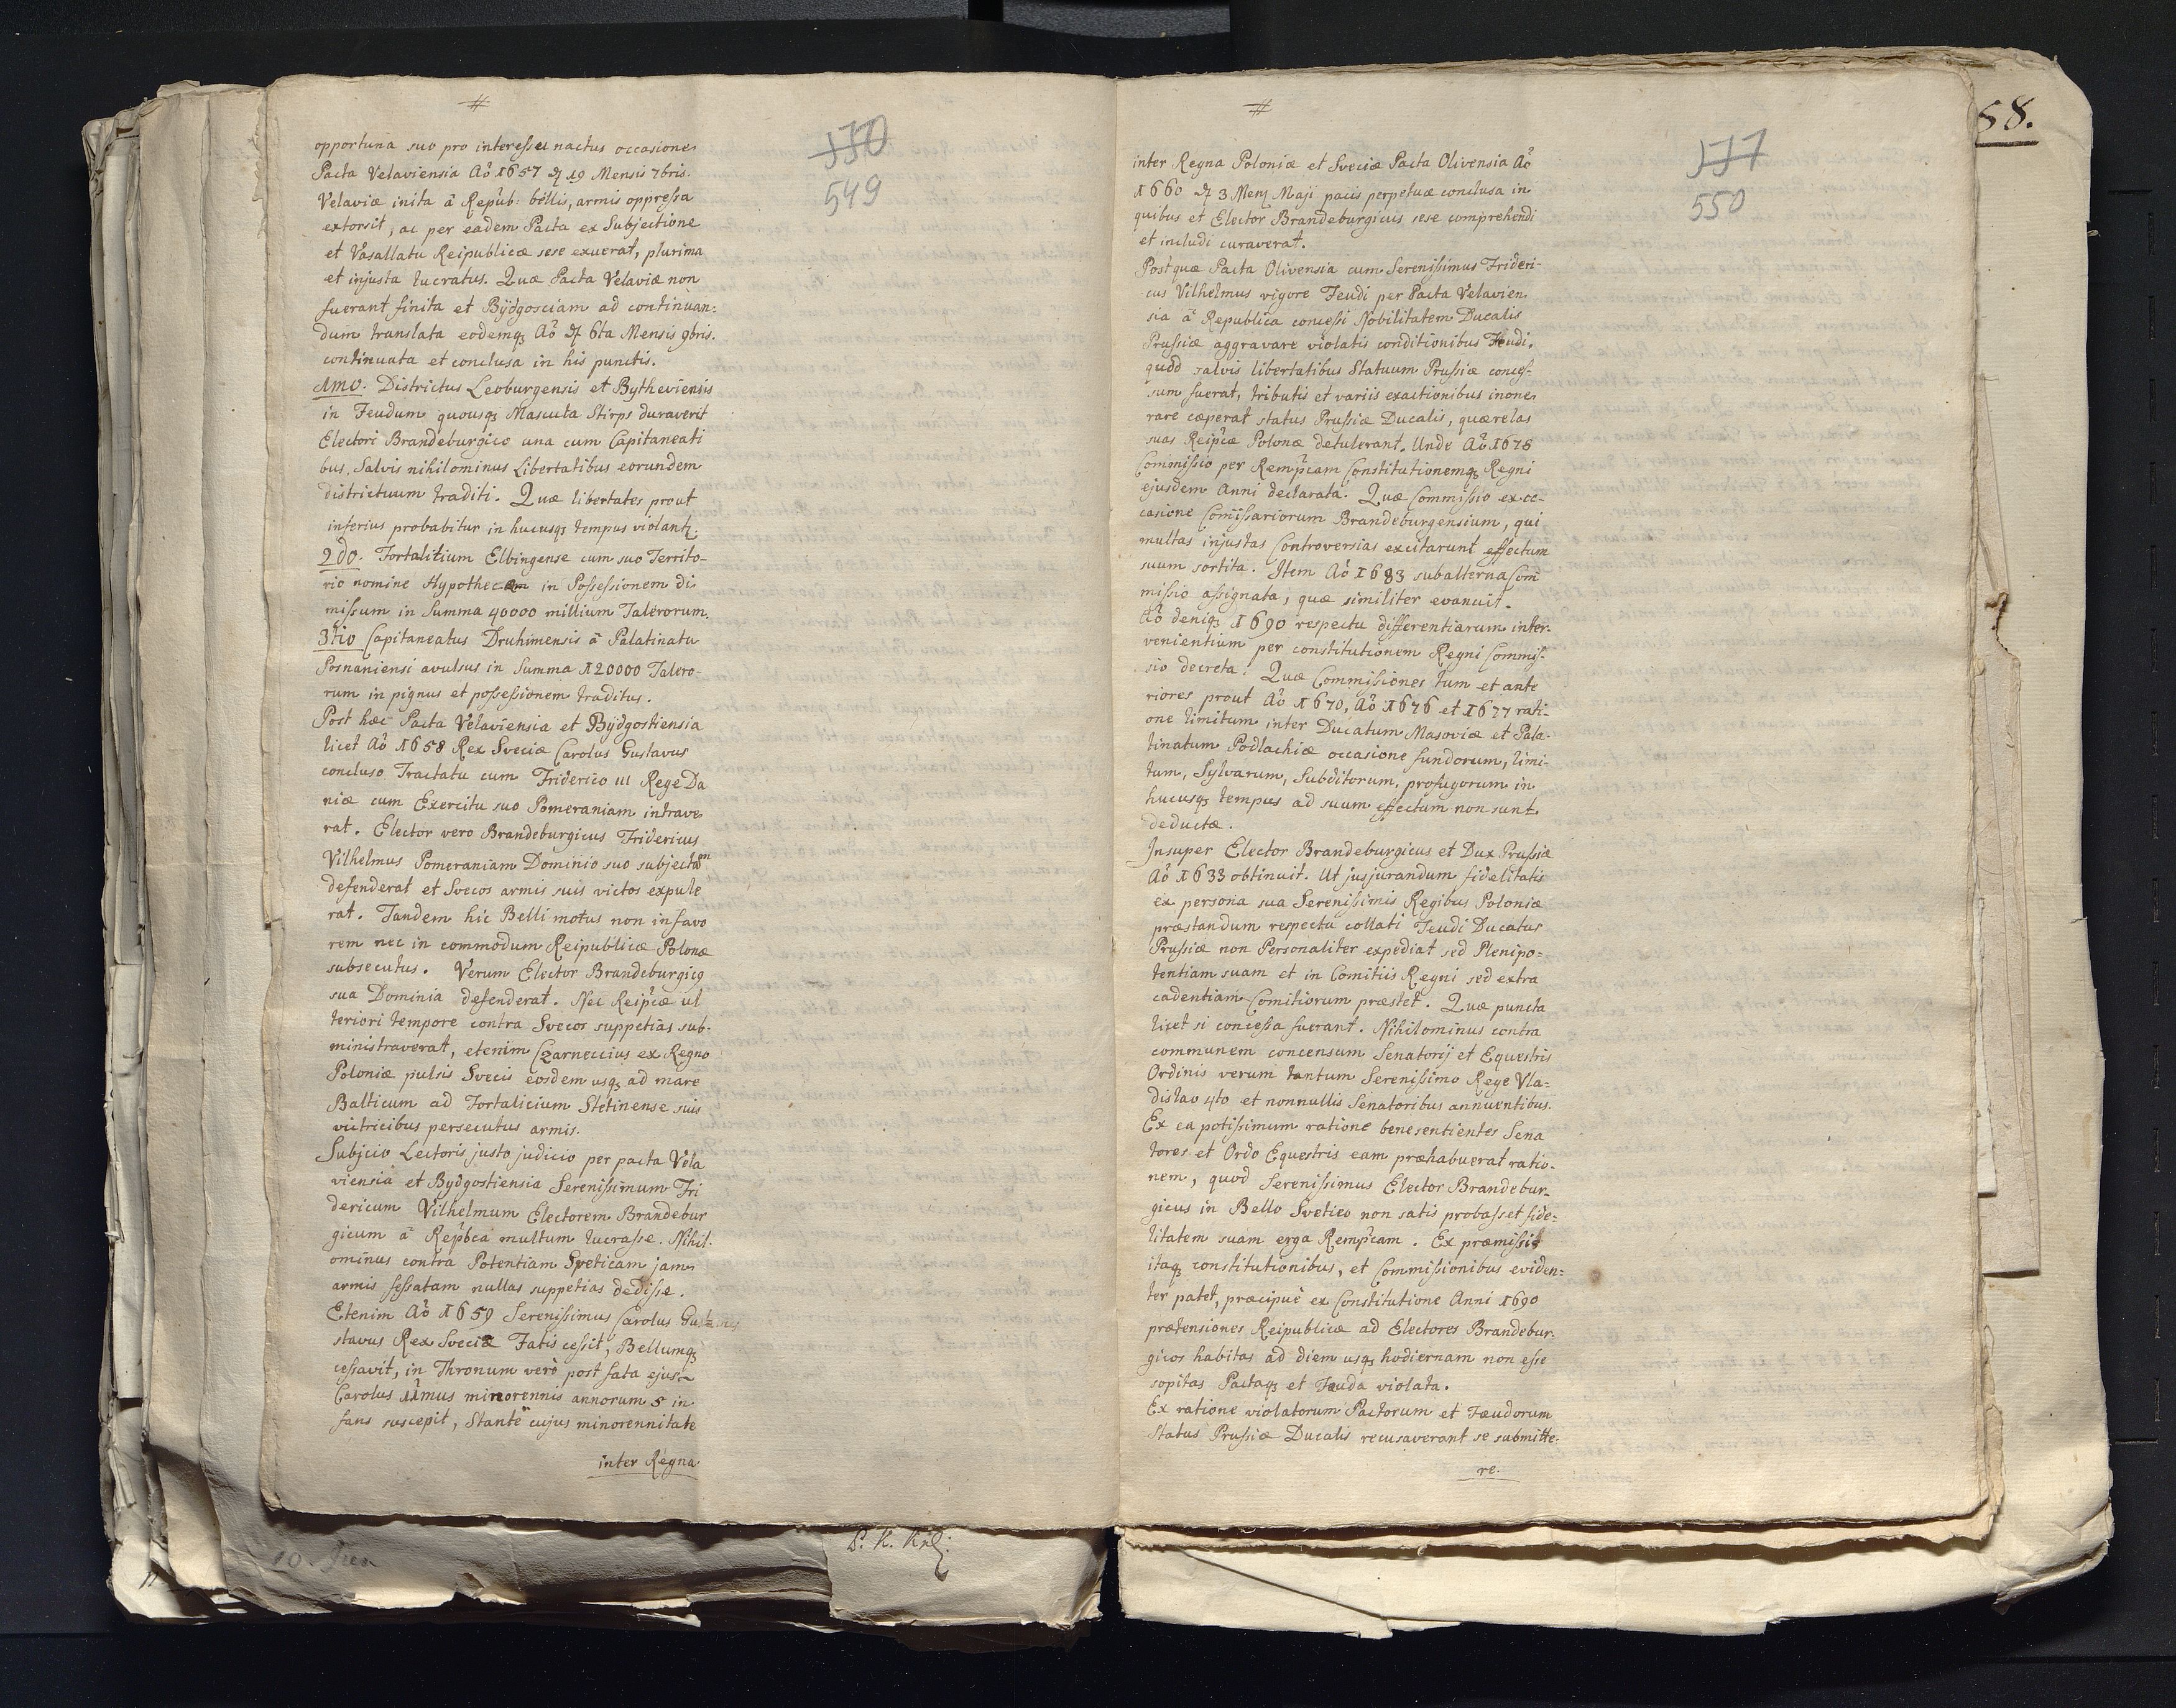 #
570
549
opportuna suo pro interesse nactus occasione
Pacta Velaviensia Aõ 1657 d 19 Mensis 7bris.
Velaviæ inita â Repub: bellis, armis oppressa
extorsit, ac per eadem Pacta ex Subjectione
et Vasallatu Reipublicæ sese exuerat, plurima
et injusta lucratus. Quæ Pacta Velaviæ non
fuerant finita et Bydgosciam ad continuan:
dum translata eodemq3 Aõ d 6ta Mensis 9bris.
continuata et conclusa in his punctis.
1mo. Districtus Leoburgensis et Bytheviensis
in Feudum quousq3 Mascula Stirps duraverit
Electori Brandeburgico una cum Capitaneati
bus, Salvis nihilominus Libertatibus eorundem
districtuum traditi. Quæ libertates prout
inferius probabitur in hucusq3 tempus violantr.
2do. Fortalitium Elbingense cum suo Territo-
rio nomine Hypothecæ in Possessionem di
missum in Summa 40000 millium Talerorum.
3tio Capitaneatus Druhimensis â Palatinatu
Posnaniensi avulsus in Summa 120000 Talero-
rum in pignus et possessionem traditus.
Post hæc Pacta Velaviensia et Bydgostiensia
licet Aõ 1658 Rex Sveciæ Carolus Gustavus
concluso Tractatu cum Friderico III Rege Da
niæ cum Exercitu suo Pomeraniam intrave
rat. Elector vero Brandeburgicus Fridericus
Vilhelmus Pomeraniam Dominio suo subjectam
defenderat et Svecos armis suis victos expule
rat. Tandem hic Belli motus non in favo
rem nec in commodum Reipublicæ Polonæ
subsecutus. Verum Elector Brandeburgic9
sua Dominia defenderat. Nec Reipcæ ul
teriori tempore contra Svecos suppetias sub-
ministraverat, etenim Czarneccius ex Regno
Poloniæ pulsis Svecis eosdem usq3 ad mare
Balticum ad Fortalicium Stetinense suis
victricibus persecutus armis.
Subjcio Lectoris justo judicio per pacta Vela
viensia et Bydgostiensia Serenissimum Fri
dericum Vilhelmum Electorem Brandebur
gicum â Repbca multum lucrasse. Nihil-
ominus contra Potentiam Sveticam jam
armis fessatam nullas suppetias dedisse.
Etenim Aõ 1659 Serenissimus Carolus Gu
stavus Rex Sveciæ Fatis cessit, Bellumq3
cessavit, in Thronum verò post fata ejus
Carolus 11mus minorennis annorum 5 in
fans suscepit, Stante cujus minorennitate
inter Regna
10.
P. K.
#
577
550
58.
inter Regna Poloniæ et Sveciæ Pacta Olivensia Aõ
1660 d 3 Mens Maji pacis perpetuæ conclusa in
quibus et Elector Brandeburgicus sese comprehendi
et includi curaverat.
Post quæ Pacta Olivensia cum Serenissimus Frideri-
cus Vilhelmus vigore Feudi per Pacta Velavien
sia â Republica concessi Nobilitatem Ducalis
Prussiæ aggravare violatis conditionibus Feudi.
quod salvis libertatibus Statuum Prussiæ conces-
sum fuerat, tributis et variis exactionibus inone
rare cæperat status Prussiæ Ducalis, quærelas
suas Reipcæ Polonæ detulerant. Unde Aõ 1678
Commissio per Rempcam Constitutionemq3 Regni
ejusdem Anni declarata. Quæ Commissio ex oc-
casione Comissariorum Brandeburgensium, qui
multas injustas Controversias excitarunt effectum
suum sortita. Item Aõ 1683 subalterna Com
missio assignata, quæ similiter evanuit.
Aõ deniq3 1690 respectu differentiarum inter-
venientium per constitutionem Regni Commis-
sio decreta. Quæ Commissiones tum et ante
riores prout Aõ 1670, Aõ 1676 et 1677 rati-
one limitum inter Ducatum Masoviæ et Pala-
tinatum Podlachiæ occasione fundorum, limi-
tum, Sylvarum, Subditorum, profugorum in
hucusq3 tempus ad suum effectum non sunt
deductæ.
Insuper Elector Brandeburgicus et Dux Prussiæ
Aõ 1633 obtinuit. Ut jusjurandum fidelitatis
ex persona sua Serenissimis Regibus Poloniæ
præstandum respectu collati Feudi Ducatus
Prussiæ non Personaliter expediat sed Plenipo-
tentiam suam et in Comitiis Regni sed extra
cadentiam Comitiorum præstet. Quæ puncta
licet si concessa fuerant. Nihilominus contra
communem concensum Senatorij et Equestris
Ordinis verum tantum Serenissimo Rege Vla-
dislao 4to et nonnullis Senatoribus annuentibus.
Ex ea potissimum ratione benesentientes Sena
tores et Ordo Equestris eam præhabuerat ratio-
nem, quod Serenissimus Elector Brandebur-
gicus in Bello Svetico non satis probasset fide-
litatem suam erga Rempcam. Ex præmissis
itaq3 constitutionibus, et Commissionibus eviden-
ter patet, præcipuè ex Constitutione Anni 1690
prætensiones Reipublicæ ad Electores Brandebur-
gicos habitas ad diem usq3 hodiernam non esse
sopitas Pactaq3 et Feuda violata.
Ex ratione violatorum Pactorum et Fæudorum
Status Prussiæ Ducalis recusaverant se submitte-
re.